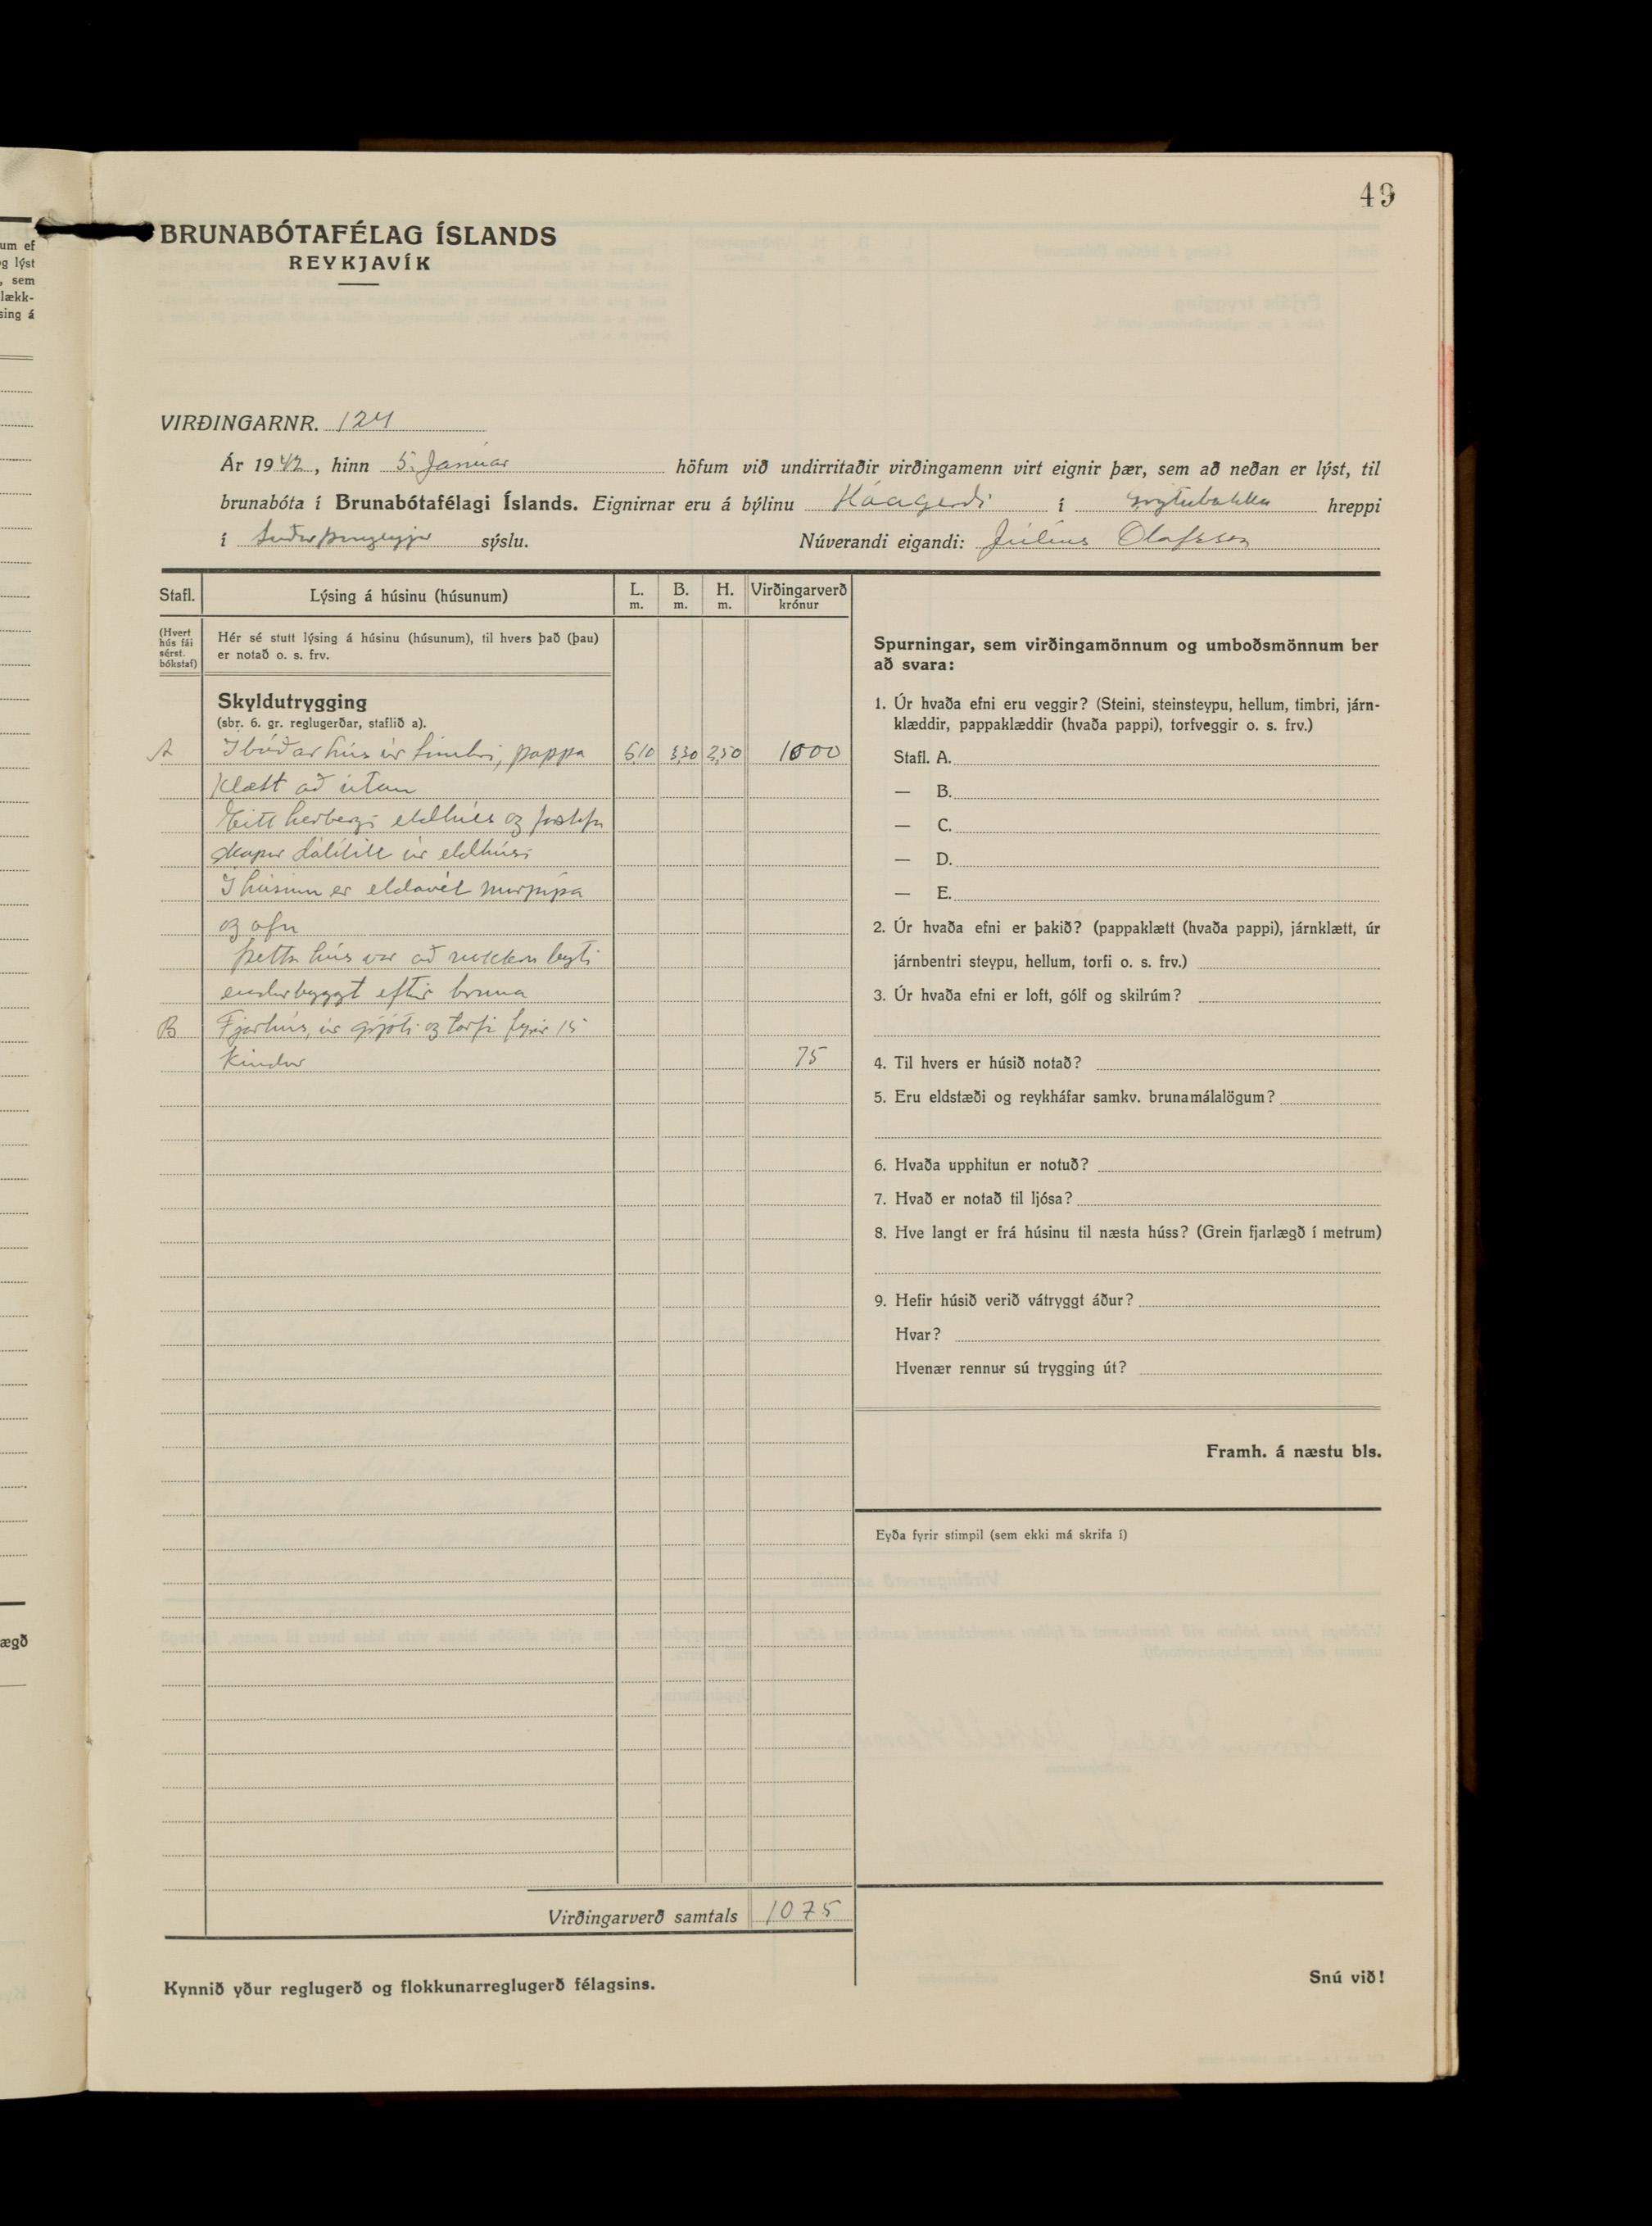 49
BRUNABÓTAFÉLAG ÍSLANDS
REYKJAVÍK
VIRÐINGARNR. 124
Ár 1942, hinn 5. Januar höfum við undirritaðir virðingamenn virt eignir þær, sem að neðan er lýst, til
brunabóta í Brunabótafélagi Íslands. Eignirnar eru á býlinu Háagerði í Grýtubakka hreppi
í Suður þingeyjar sýslu. Núverandi eigandi: Júlíus Olafsson
Stafl. Lýsing á húsinu (húsunum) L. m. B. m. H. m. Virðingarverð krónur
(Hvert hús fái sérst. bókstaf)
Hér sé stutt lýsing á húsinu (húsunum), til hvers það (þau)
er notað o. s. frv.
Skyldutrygging
(sbr. 6. gr. reglugerðar, staflið a).
A Ibúðarhús úr timbri, pappa 5,10 3,30 2,50 1000
klætt að utan
Eitt herbergi eldhús og
úr eldhúsi
I húsinu er eldavél múrpípa
og ofn
þetta hús var að nokkru leyti
endurbyggt eftir bruna
B Fjárhús, úr grjóti og torfi fyrir 15
kindur 75
Virðingarverð samtals 1075
Kynnið yður reglugerð og flokkunarreglugerð félagsins.
Spurningar, sem virðingamönnum og umboðsmönnum ber
að svara:
1. Úr hvaða efni eru veggir? (Steini, steinsteypu, hellum, timbri, járn-
klæddir, pappaklæddir (hvaða pappi), torfveggir o. s. frv.)
Stafl. A.
— B.
— C.
— D.
— E.
2. Úr hvaða efni er þakið? (pappaklætt (hvaða pappi), járnklætt, úr
járnbentri steypu, hellum, torfi o. s. frv.)
3. Úr hvaða efni er loft, gólf og skilrúm?
4. Til hvers er húsið notað?
5. Eru eldstæði og reykháfar samkv. brunamálalögum?
6. Hvaða upphitun er notuð?
7. Hvað er notað til ljósa?
8. Hve langt er frá húsinu til næsta húss? (Grein fjarlægð í metrum)
9. Hefir húsið verið vátryggt áður?
Hvar?
Hvenær rennur sú trygging út?
Framh. á næstu bls.
Eyða fyrir stimpil (sem ekki má skrifa í)
Snú við!
um ef
g lýst
, sem
lækk-
sing á
ægð